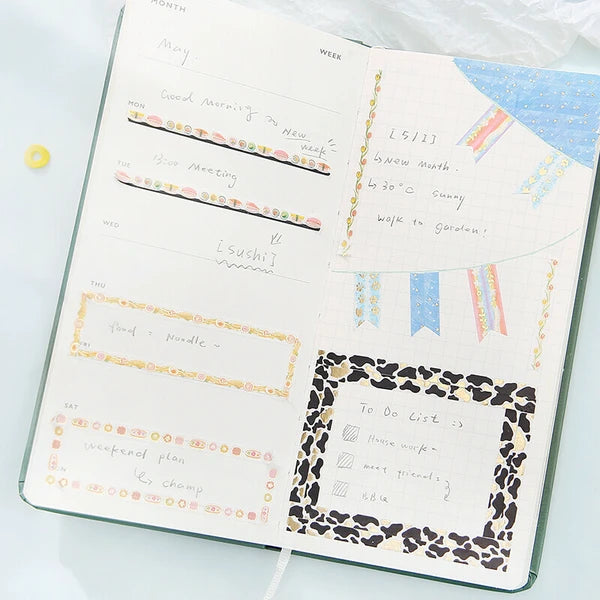 MONTH
May.
WEEK
MON
Good morning
New
week
TUE
13:00 Meeting
WED
[sushi]
THU
Food = Noodle ~
FRI
SAT
weekend plan
↳ champ
[5/1]
↳ New month.
↳ 30°C sunny
walk to garden!
To Do List :)
House work~
meet friends
BBQ